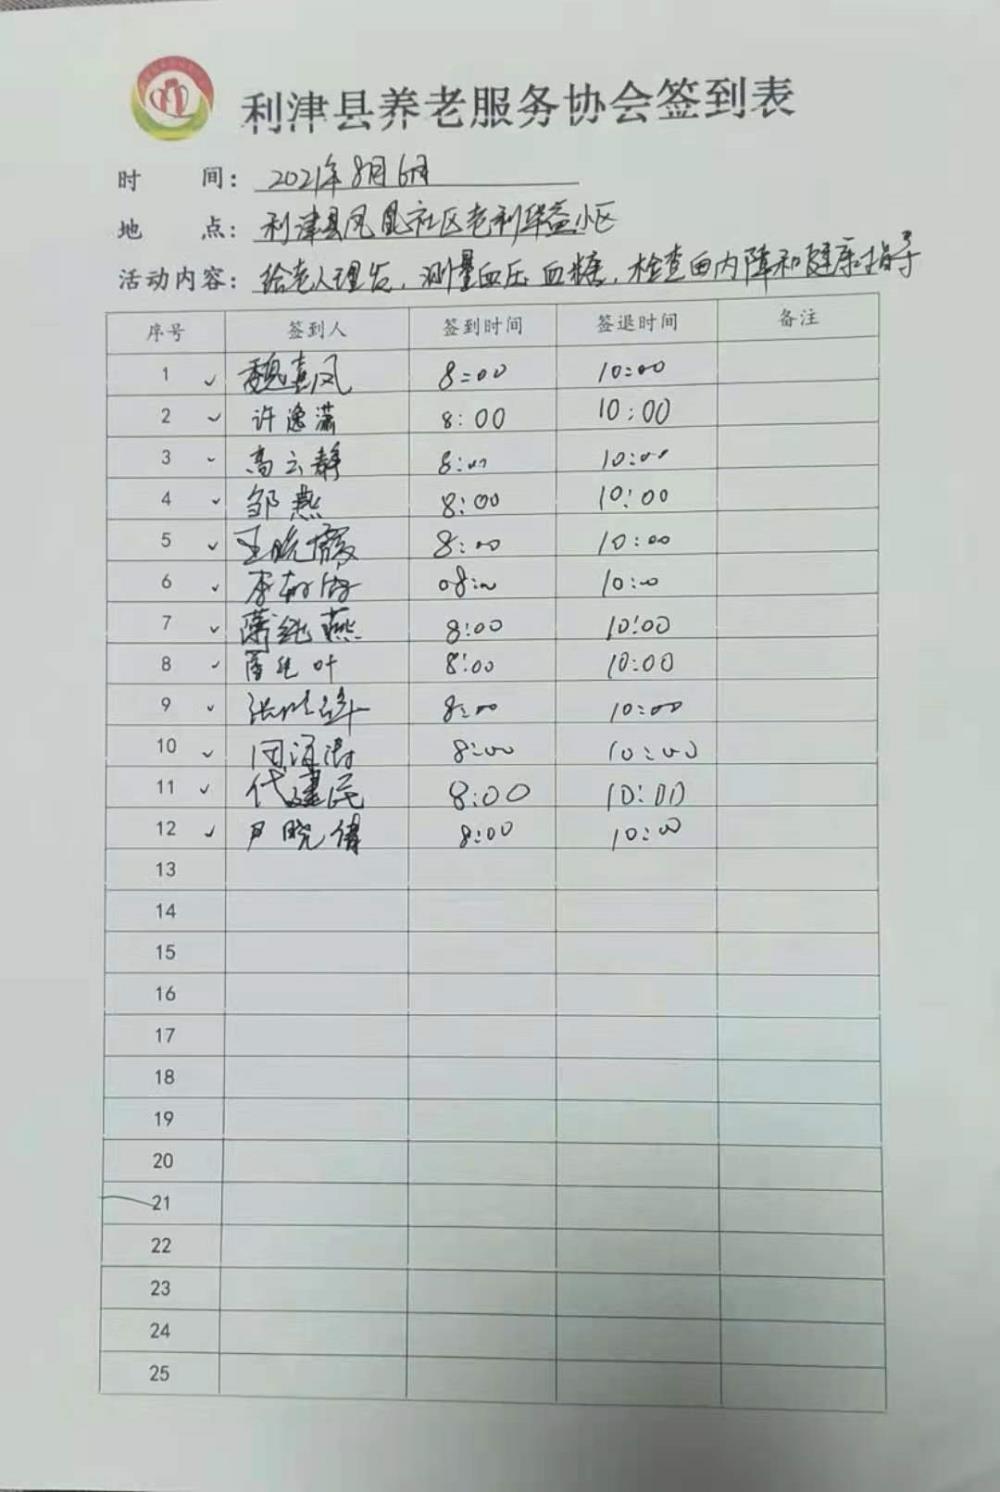 利津县养老服务协会签到表
时 间: 2021年8月6日
地 点: 利津县凤凰社区老利华益小区
活动内容: 给老人理发, 测量血压 血糖, 检查白内障和健康指导
序号 签到人 签到时间 签退时间 备注
1 魏喜凤 8:00 10:00
2 许逸潇 8:00 10:00
3 高云静 8:00 10:00
4 邹燕 8:00 10:00
5 王晓霞 8:00 10:00
6 08:00 10:00
7 燕 8:00 10:00
8 叶 8:00 10:00
9 8:00 10:00
10 8:00 10:00
11 代建民 8:00 10:00
12 尹晓倩 8:00 10:00
13
14
15
16
17
18
19
20
21
22
23
24
25